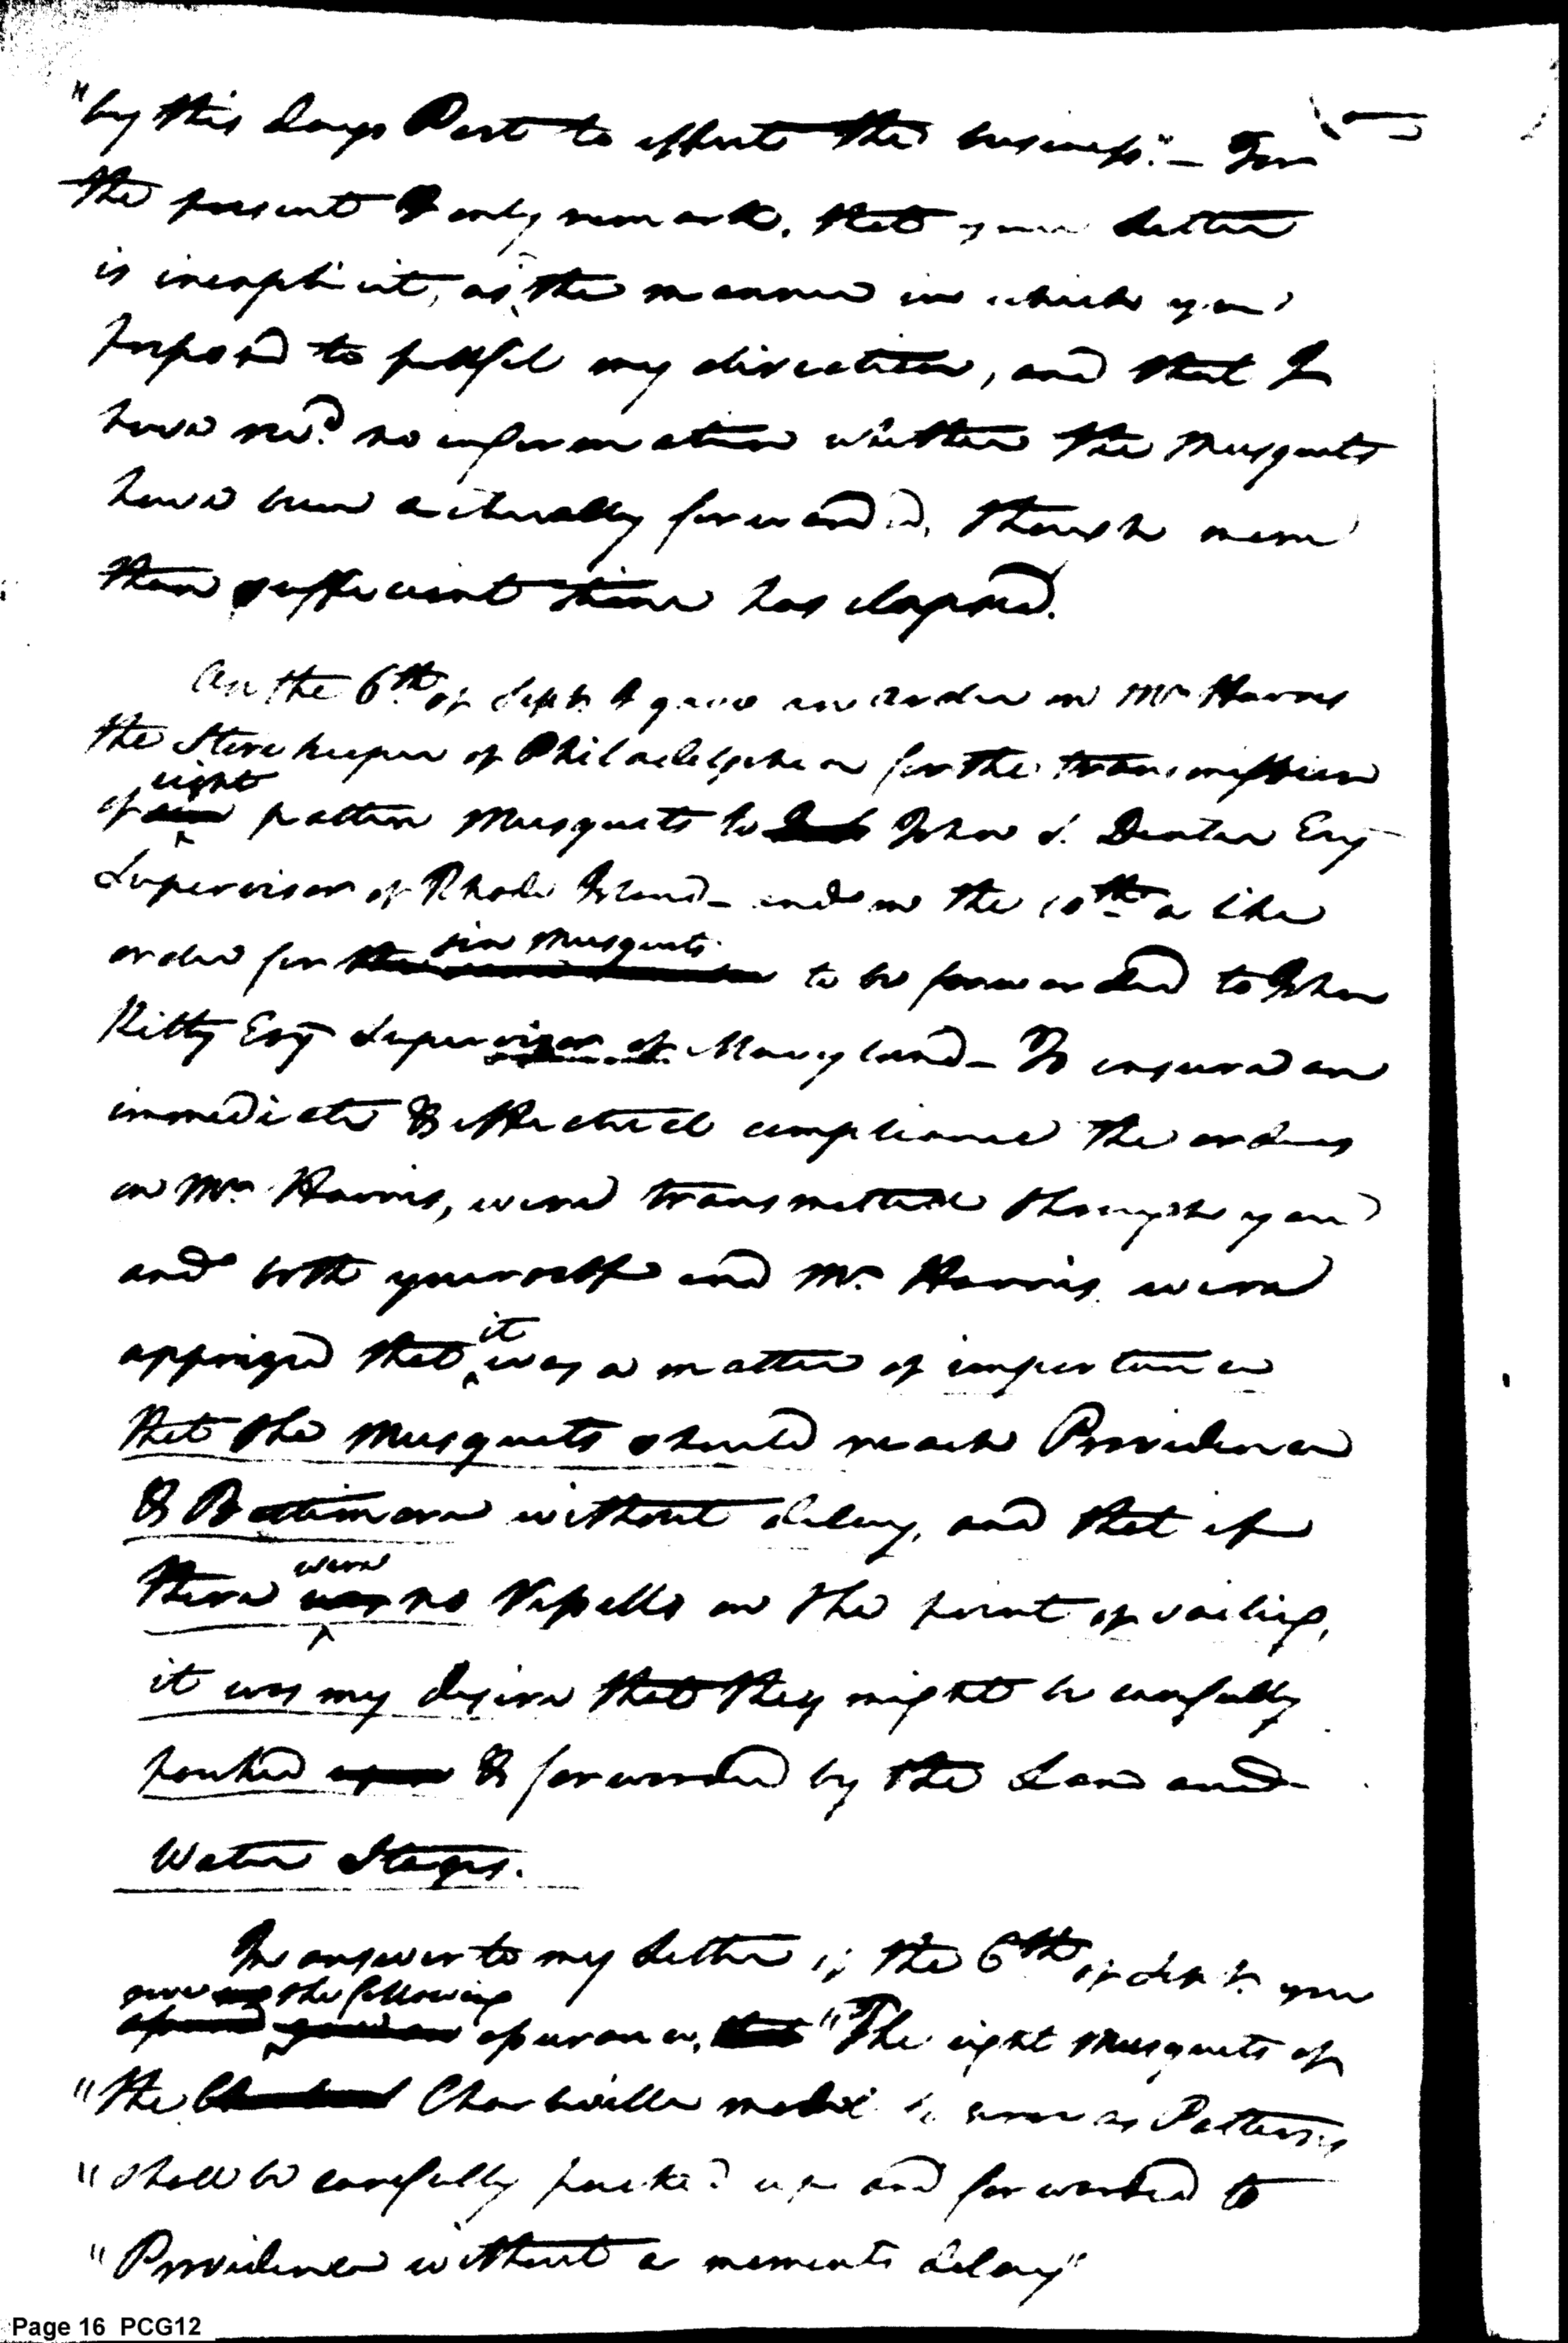 "by this days Post to effect the business."— For
the present I only remark, that your Letter
is inexplicit, as the manner in which you
proposed to fulfil my direction, and that I
have recd. no information whether the Musquets
have been actually forwarded, though more
than sufficient time has elapsed.
On the 6th of Sept. I gave an order on Mr Harris
the Store keeper of Philadelphia for the transmission
eight
of six pattern Musquets to John S. Dexter Esq
Supervisor of Rhode Island— and on the 10th a like
six Musquets
order for to be forwarded to John
Kilty Esq Supervisor of Maryland— To insure an
immediate & effectual compliance the orders
on Mr Harris, were transmitted through you
and both yourself and Mr. Harris were
it
apprized that was a matter of importance
that the Musquets should reach Providence
& Baltimore without delay, and that if
were
there was no Vessells on the point of sailing,
it was my desire that they might be carefully
packed & forwarded by the Land and
Water Stages.
In answer to my Letter of the 6th of Sept. you
the following
assurance, "The eight Musquets of
"the Charleville model to serve as Patterns
"shall be carefully packed up and forwarded to
"Providence without a moments delay"
Page 16 PCG12